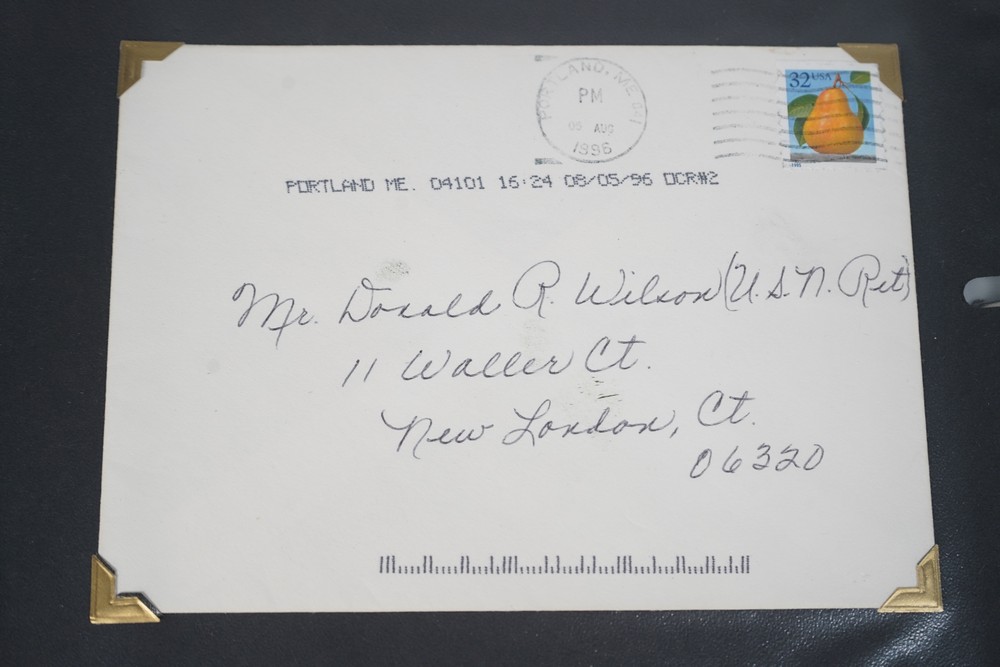 PORTLAND, ME 041
PM
05 AUG
1996
32 USA
PORTLAND ME. 04101 16:24 08/05/96 OCR#2
Mr. Donald R. Wilson (U.S.N. Ret)
11 Waller Ct.
New London, Ct.
06320